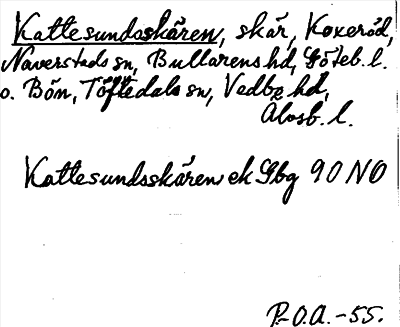 Kattesundsskären, skär, Koxeröd,
Naverstads sn, Bullarens hd, Göteb. l.
o. Bön, Töftedals sn, Vedbo hd,
Älvsb. l.
Kattesundsskären ek Gbg 90 NO
P-O.A.-55.